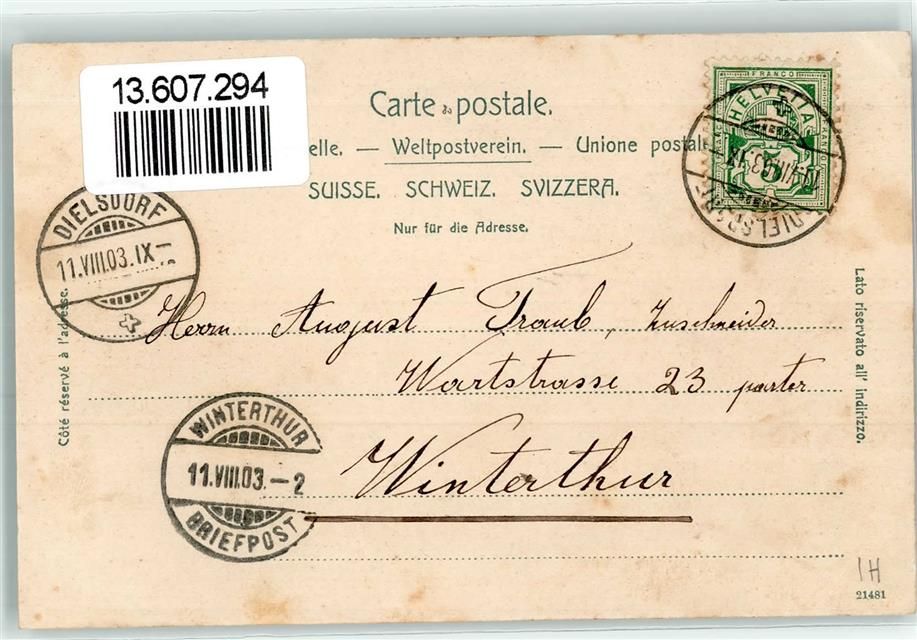 13.607.294
Carte postale.
elle. — Weltpostverein. — Unione postale
SUISSE. SCHWEIZ. SVIZZERA.
Nur für die Adresse.
FRANCO
HELVETIA
DIELSDORF
11.VIII.03.IX-
Herrn August Traub, Zuschneider
Wartstrasse 23 parter
Winterthur
WINTERTHUR
11.VIII.03.-2
BRIEFPOST
Côté réservé à l'adresse.
Lato riservato all' indirizzo.
1H
21481